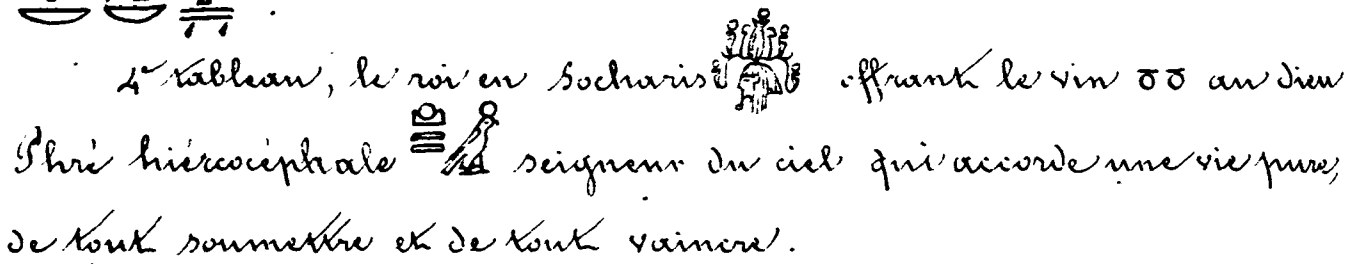 4e tableau, le roi en Socharis offrant le vin au dieu
Phré hiércocéphale seigneur du ciel qui accorde une vie pure,
de tout soumettre et de tout vaincre.